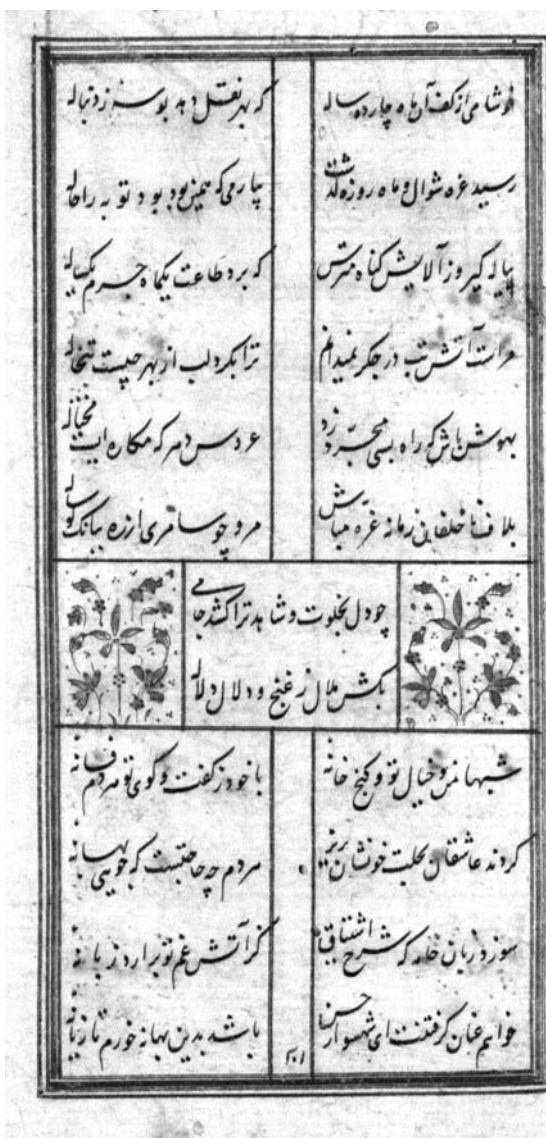 خوشا می از کف آن ماه چارده ساله که بهر نقل دهد بوسه ز دنباله
رسید غره شوال و ماه روزه گذشت بیار می که همین بود توبه را حاله
پیاله گیر و ز آلایش گناه مترس که برد طاعت یکماه جرم یکساله
مراست آتش تب در جگر نمیدانم ترا بگرد لب از بهر چیست تبخاله
بهوش باش که راه بسی مجرد زد عروس دهر که مکاره ایست محتاله
بلاف ناخلفان زمانه غره مباش مرو چو سامری از ره ببانک گوساله
چو دل بخلوت و شاهد ترا کشد جامی
بکش ملال ز غنج و دلال دلاله
شبها من و خیال تو و کنج خانه با خود ز گفت و گوی تو مردم فسانه
کردند عاشقان بحلت خونشان بریز مردم چه حاجتست که جویی بهانه
سوزد زبان خامه که شرح اشتیاق گر آتش غم تو برارد زبانه
خواهم عنان گرفتنت ای شهسوار حسن باشد بدین بهانه خورم تازیانه